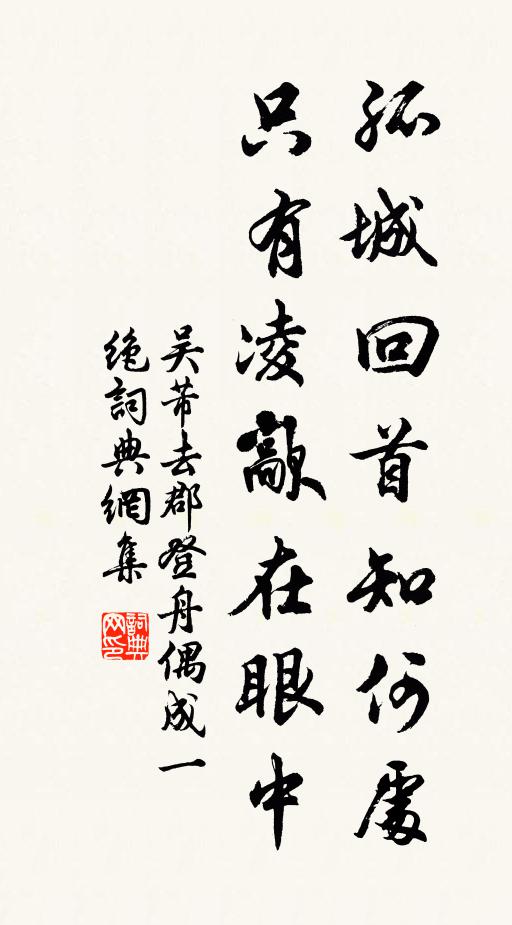 孤城回首知何處
只有凌歊在眼中
吳芾去郡登舟偶成一
絕詞典網集
詞典
网印